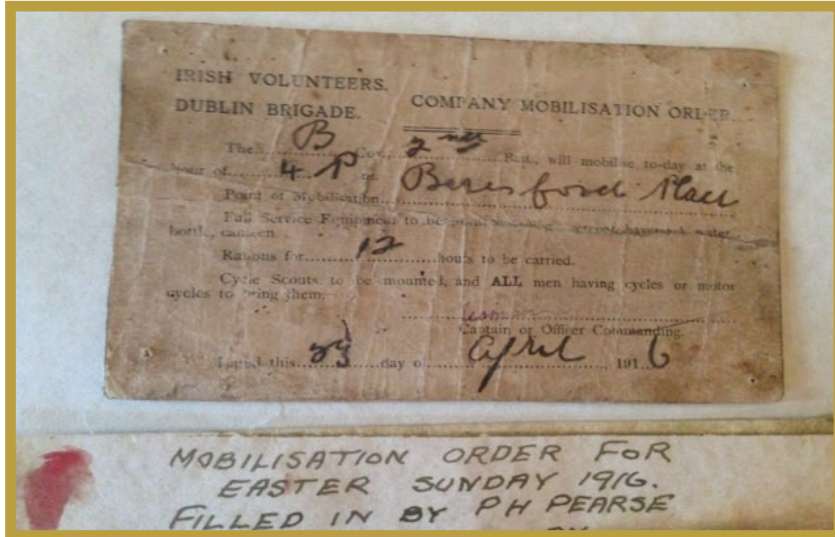 IRISH VOLUNTEERS.
DUBLIN BRIGADE. COMPANY MOBILISATION ORDER.
The B Coy., 2nd Batt., will mobilise to-day at the
hour of 4 P
Point of Mobilisation Beresford Place
Full Service Equipment to be haversack, water
bottle, canteen.
Rations for 12 hours to be carried.
Cycle Scouts to be mounted, and ALL men having cycles or motor
cycles to bring them.
Captain or Officer Commanding.
Dated this 23 day of April 1916
MOBILISATION ORDER FOR
EASTER SUNDAY 1916.
FILLED IN BY PH PEARSE